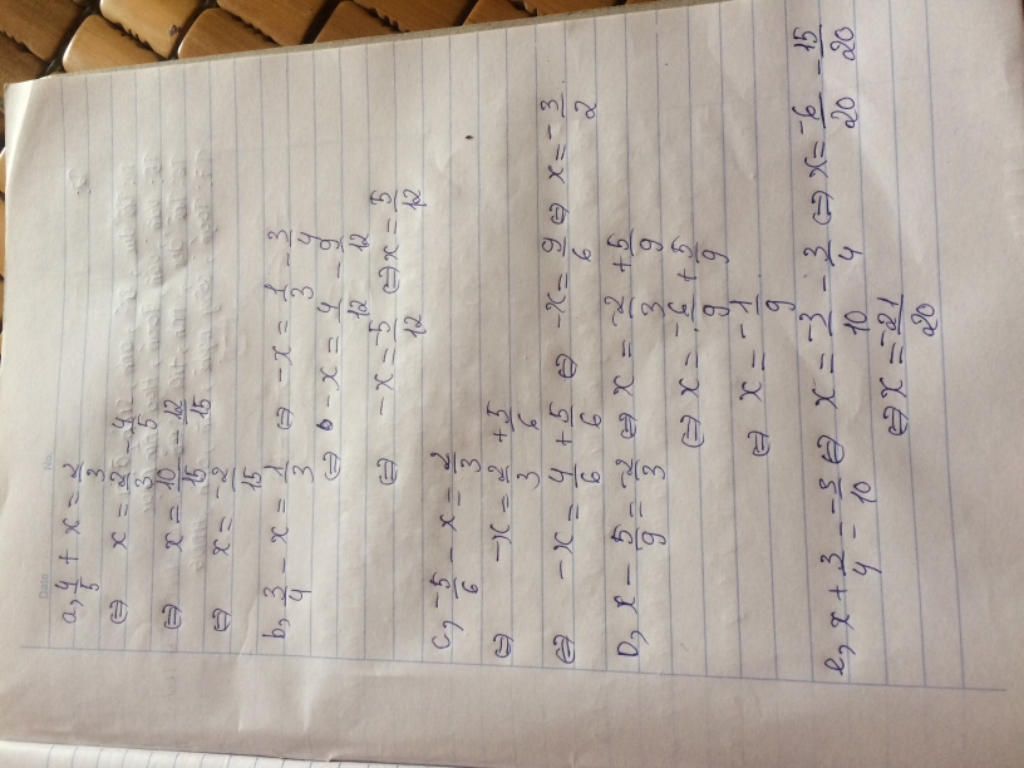 Date
No.
a, 4/5 + x = 2/3
⇔ x = 2/3 - 4/5
⇔ x = 10/15 - 12/15
⇔ x = -2/15
b, 3/4 - x = 1/3 ⇔ -x = 1/3 - 3/4
⇔ - x = 4/12 - 9/12
⇔ -x = -5/12 ⇔ x = 5/12
c, -5/6 - x = 2/3
⇔ -x = 2/3 + 5/6
⇔ -x = 4/6 + 5/6 ⇔ -x = 9/6 ⇔ x = -3/2
D, x - 5/9 = -2/3 ⇔ x = -2/3 + 5/9
⇔ x = -6/9 + 5/9
⇔ x = -1/9
e, x + 3/4 = -3/10 ⇔ x = -3/10 - 3/4 ⇔ x = -6/20 - 15/20
⇔ x = -21/20